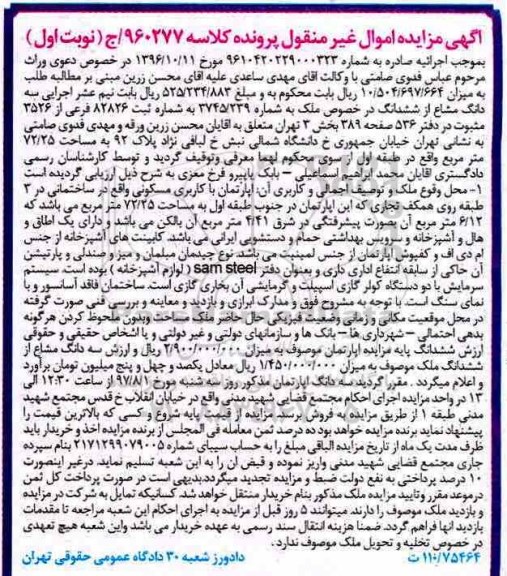 آگهی مزایده اموال غیر منقول پرونده کلاسه ۹۶۰۲۷۷/ج (نوبت اول)
بموجب اجرائیه صادره به شماره ۹۶۱۰۴۲۰۲۲۹۰۰۰۳۲۳ مورخ ۱۳۹۶/۱۰/۱۱ در خصوص دعوی وراث
مرحوم عباس فدوی صامتی با وکالت اقای مهدی ساعدی علیه اقای محسن زرین مبنی بر مطالبه طلب
به میزان ۱۰/۵۰۴/۶۹۷/۶۶۴ ریال بابت محکوم به و مبلغ ۵۲۵/۲۳۴/۸۸۳ ریال بابت نیم عشر اجرایی سه
دانگ مشاع از ششدانگ در خصوص ملک به شماره ۳۷۴۵/۲۳۹ به شماره ثبت ۸۲۸۲۶ فرعی از ۳۵۲۶
مثبوت در دفتر ۵۳۶ صفحه ۳۸۹ بخش ۳ تهران متعلق به اقایان محسن زرین ورقه و مهدی فدوی صامتی
به نشانی تهران خیابان جمهوری خ دانشگاه شمالی نبش خ لبافی نژاد پلاک ۹۲ به مساحت ۷۲/۲۵
متر مربع واقع در طبقه اول از سوی محکوم لهما معرفی وتوقیف گردید و توسط کارشناسان رسمی
دادگستری اقایان محمد ابراهیم اسماعیلی – بابک پاپیرو فرخ معزی به شرح ذیل ارزیابی گردیده است
۱- محل وقوع ملک و توصیف اجمالی و کاربری آن: اپارتمان با کاربری مسکونی واقع در ساختمانی در ۳
طبقه روی همکف تجاری که این اپارتمان در جنوب طبقه اول به مساحت ۷۲/۲۵ متر مربع می باشد که
۶/۱۲ متر مربع آن بصورت پیشرفتگی در شرق ۴/۴۱ متر مربع آن بالکن می باشد و دارای یک اطاق و
هال و آشپزخانه و سرویس بهداشتی حمام و دستشویی ایرانی می باشد. کابینت های آشپزخانه از جنس
ام دی اف و کفپوش آپارتمان از جنس لمینیت می باشد. نوع چیدمان مبلمان و میز و صندلی و پارتیشن
آن حاکی از سابقه انتفاع اداری داری و بعنوان دفتر sam steel ( لوازم آشپزخانه ) بوده است. سیستم
سرمایش با دو دستگاه کولر گازی اسپیلت و گرمایشی آن بخاری گازی است. ساختمان فاقد آسانسور و با
نمای سنگ است. با توجه به مشروح فوق و مدارک ابرازی و بازدید و معاینه و بررسی فنی صورت گرفته
در محل موقعیت مکانی و زمانی وضعیت فیزیکی حال حاضر ملک مساحت وبدون ملحوظ کردن هرگونه
بدهی احتمالی – شهرداری ها – بانک ها و سازمانهای دولتی و غیر دولتی و یا اشخاص حقیقی و حقوقی
ارزش ششدانگ پایه مزایده اپارتمان موصوف به میزان ۲/۹۰۰/۰۰۰/۰۰۰ ریال و ارزش سه دانگ مشاع از
ششدانگ ملک موصوف به میزان ۱/۴۵۰/۰۰۰/۰۰۰ ریال معادل یکصد و چهل و پنج میلیون تومان برآورد
و اعلام میگردد . مقرر گردید سه دانگ اپارتمان مذکور روز سه شنبه مورخ ۹۷/۸/۱ از ساعت ۱۲:۳۰ الی
۱۳ در واحد مزایده اجرای احکام مجتمع قضایی شهید مدنی واقع در خیابان انقلاب خ قدس مجتمع شهید
مدنی طبقه ۱ از طریق مزایده به فروش برسد. مزایده از قیمت پایه شروع و کسی که بالاترین قیمت را
پیشنهاد نماید برنده مزایده خواهد بود ده درصد ثمن معامله فی المجلس از برنده مزایده اخذ و خریدار باید
ظرف مدت یک ماه از تاریخ مزایده الباقی مبلغ را به حساب سیبای شماره ۲۱۷۱۲۹۹۰۷۹۰۰۵ بنام سپرده
جاری مجتمع قضایی شهید مدنی واریز نموده و قبض ان را به این شعبه تسلیم نماید. درغیر اینصورت
۱۰ درصد پرداختی به نفع دولت ضبط و مزایده تجدید میگردد.بدیهی است در صورت پرداخت کل ثمن
درموعد مقرر وتایید مزایده ملک مذکور بنام خریدار منتقل خواهد شد. کسانیکه تمایل به شرکت در مزایده
و بازدید ملک موصوف را دارند. میتوانند ۵ روز قبل از مزایده به اجرای احکام این شعبه مراجعه تا مقدمات
بازدید انها فراهم گردد. ضمنا هزینه انتقال سند رسمی به عهده خریدار می باشد واین شعبه هیچ تعهدی
در خصوص تخلیه و تحویل ملک موصوف ندارد.
۱۱۰/۷۵۴۶۴ ت دادورز شعبه ۳۰ دادگاه عمومی حقوقی تهران